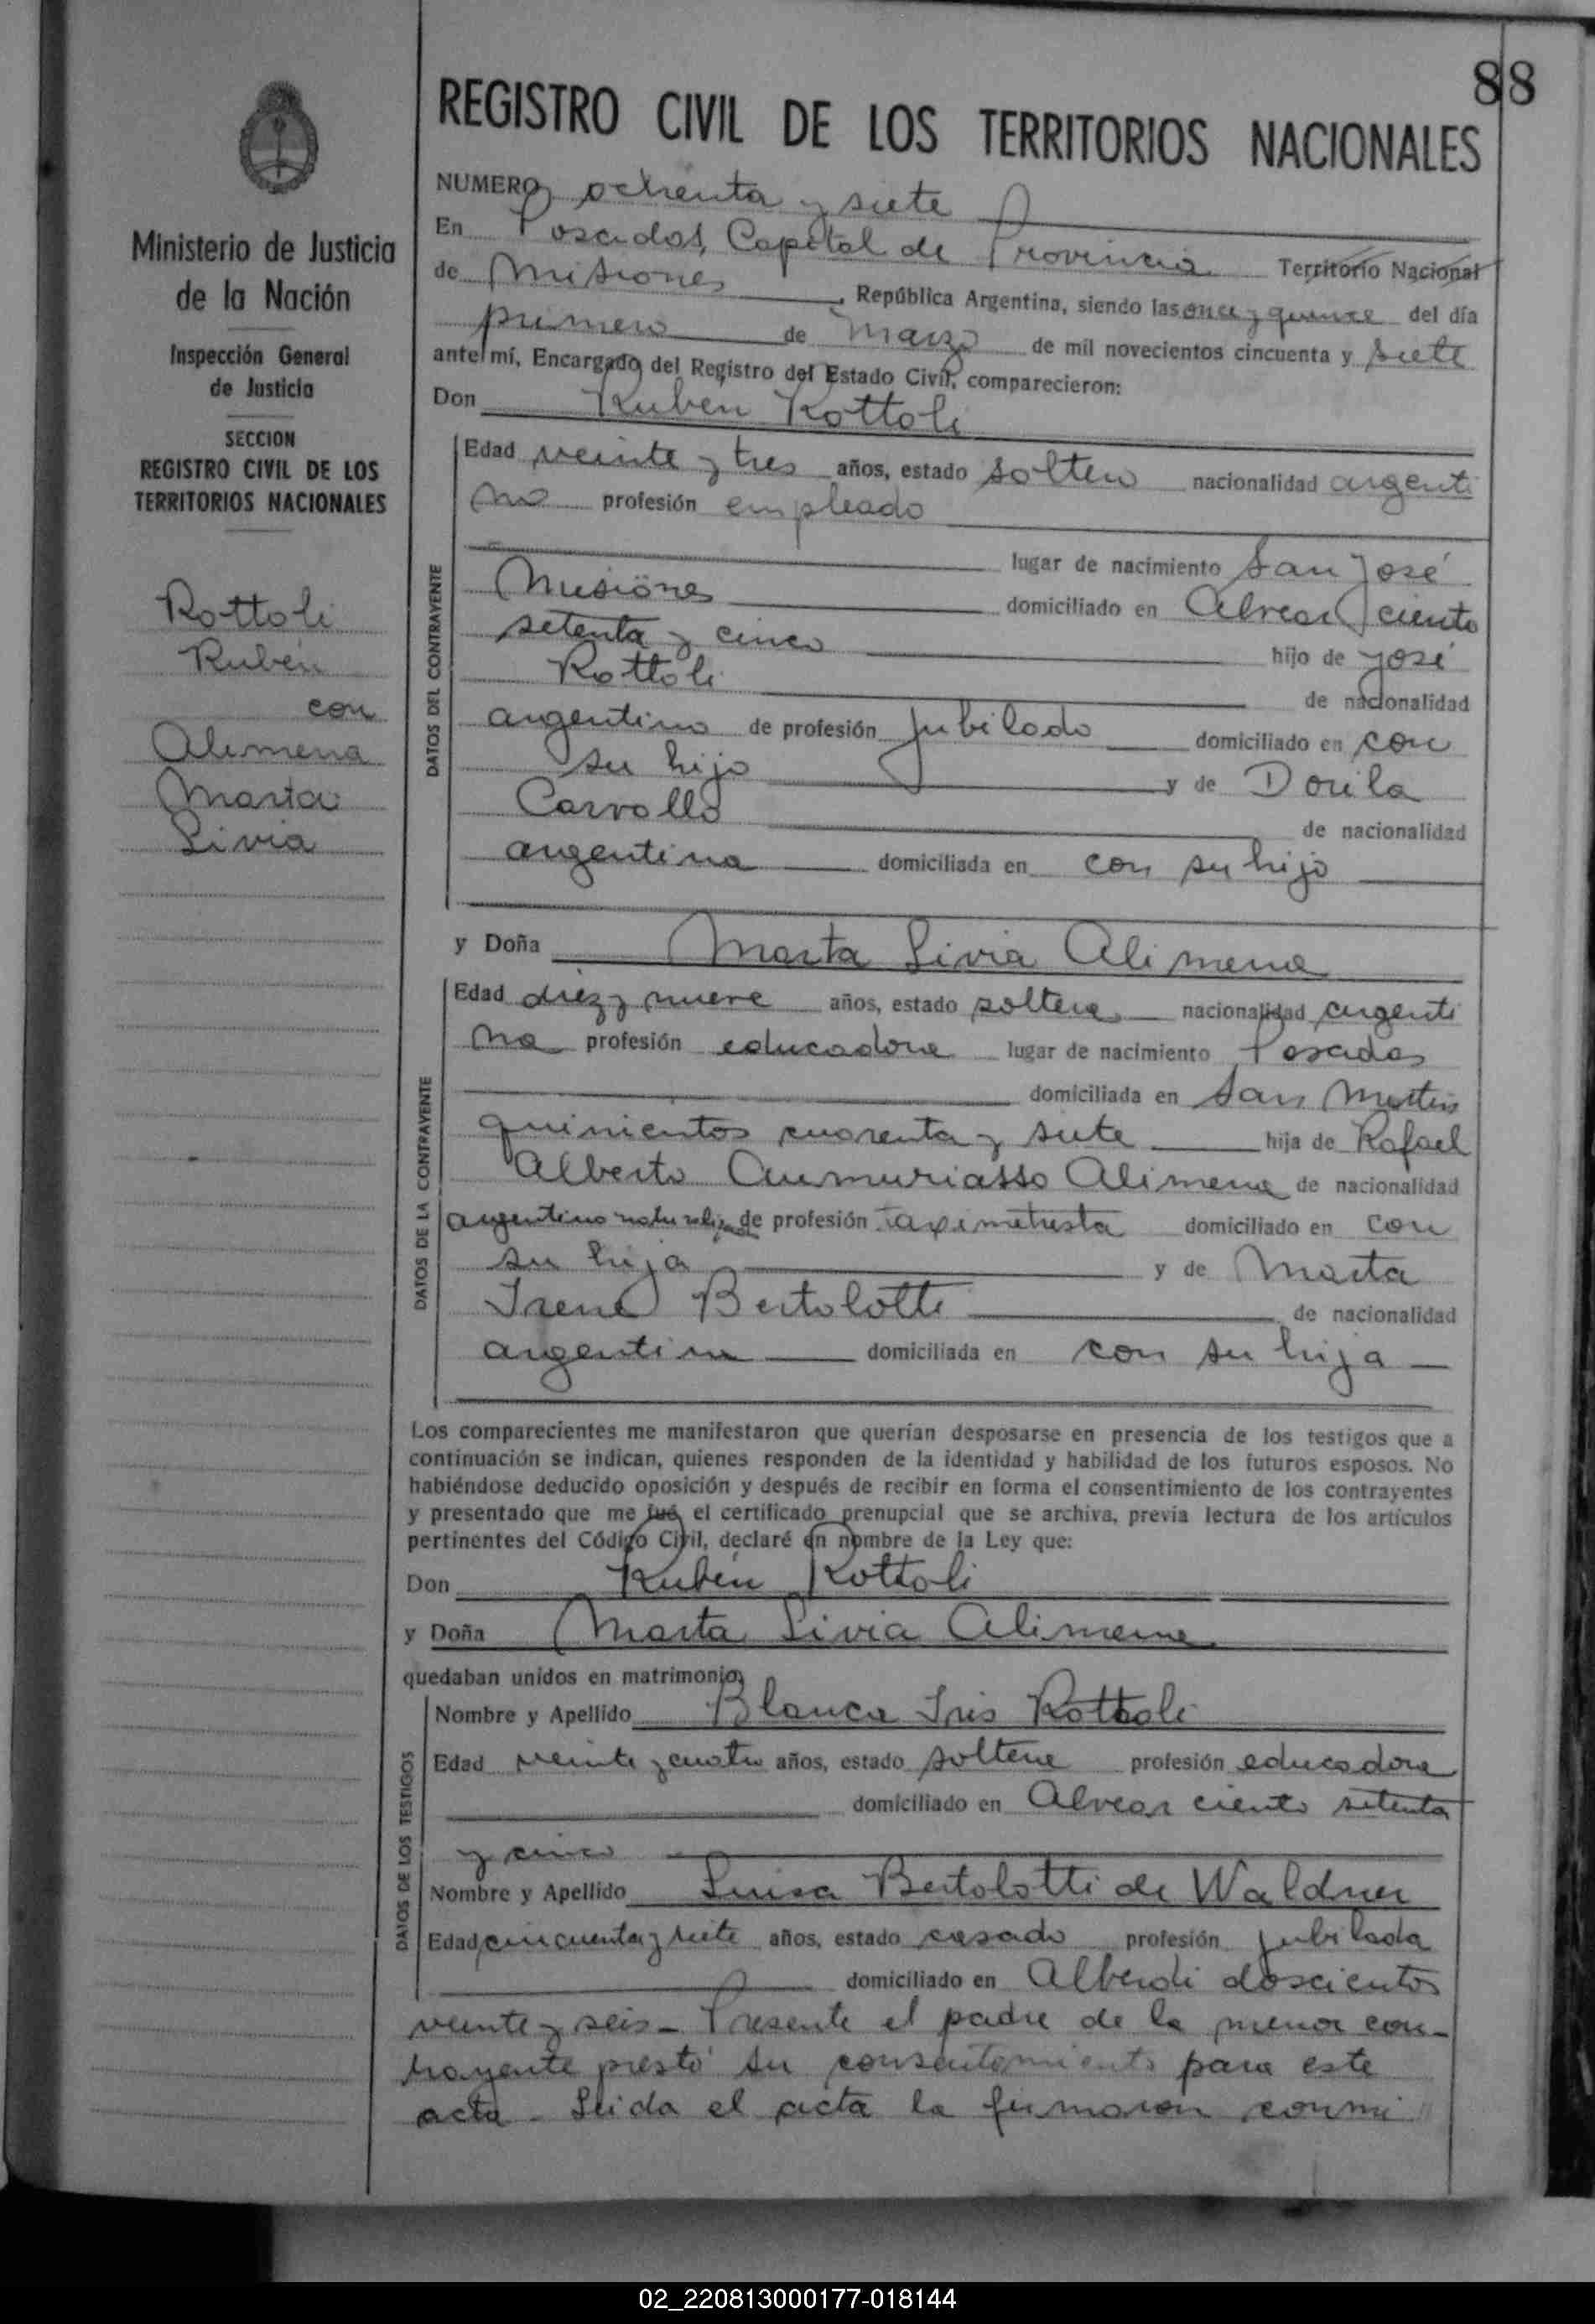 88
REGISTRO CIVIL DE LOS TERRITORIOS NACIONALES
Ministerio de Justicia
de la Nación
Inspección General
de Justicia
SECCION
REGISTRO CIVIL DE LOS
TERRITORIOS NACIONALES
Rottoli
Rubén
con
Alimena
Marta
Livia
NUMERO ochenta y siete
En Posadas, Capital de Provincia Territorio Nacional
de Misiones, República Argentina, siendo las once y quince del día
primero de Marzo de mil novecientos cincuenta y siete
ante mí, Encargado del Registro del Estado Civil, comparecieron:
Don Rubén Rottoli
DATOS DEL CONTRAYENTE
Edad veinte y tres años, estado soltero nacionalidad argenti
no profesión empleado
lugar de nacimiento San José
Misiones domiciliado en Alvear ciento
setenta y cinco hijo de José
Rottoli de nacionalidad
argentino de profesión Jubilado domiciliado en con
su hijo y de Dorila
Carvallo de nacionalidad
argentina domiciliada en con su hijo
y Doña Marta Livia Alimena
DATOS DE LA CONTRAYENTE
Edad diez y nueve años, estado soltera nacionalidad argenti
na profesión educadora lugar de nacimiento Posadas
domiciliada en San Martin
quinientos cuarenta y siete hija de Rafael
Alberto Alimena de nacionalidad
argentino naturalizado de profesión taximetrista domiciliado en con
su hija y de Marta
Irene Bertolotti de nacionalidad
argentina domiciliada en con su hija
Los comparecientes me manifestaron que querían desposarse en presencia de los testigos que a
continuación se indican, quienes responden de la identidad y habilidad de los futuros esposos. No
habiéndose deducido oposición y después de recibir en forma el consentimiento de los contrayentes
y presentado que me fué el certificado prenupcial que se archiva, previa lectura de los artículos
pertinentes del Código Civil, declaré en nombre de la Ley que:
Don Rubén Rottoli
y Doña Marta Livia Alimena
quedaban unidos en matrimonio,
DATOS DE LOS TESTIGOS
Nombre y Apellido Blanca Iris Rottoli
Edad veinte y cuatro años, estado soltera profesión educadora
domiciliado en Alvear ciento setenta
y cinco
Nombre y Apellido Luisa Bertolotti de Waldner
Edad cincuenta y siete años, estado casado profesión jubilada
domiciliado en Alberdi doscientos
veinte y seis- Presente el padre de la menor con-
trayente prestó su consentimiento para este
acta- Leida el acta la firmaron conmi
02_220813000177-018144